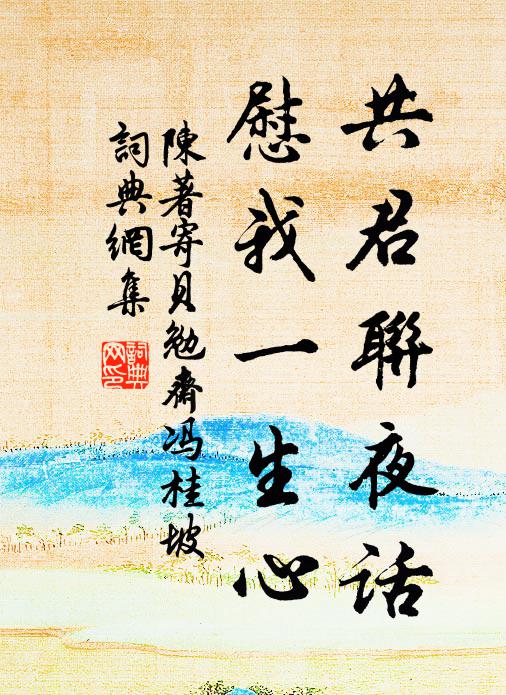 共君聯夜話
慰我一生心
陳著寄貝勉齋馮桂坡
詞典網集
詞典
网印